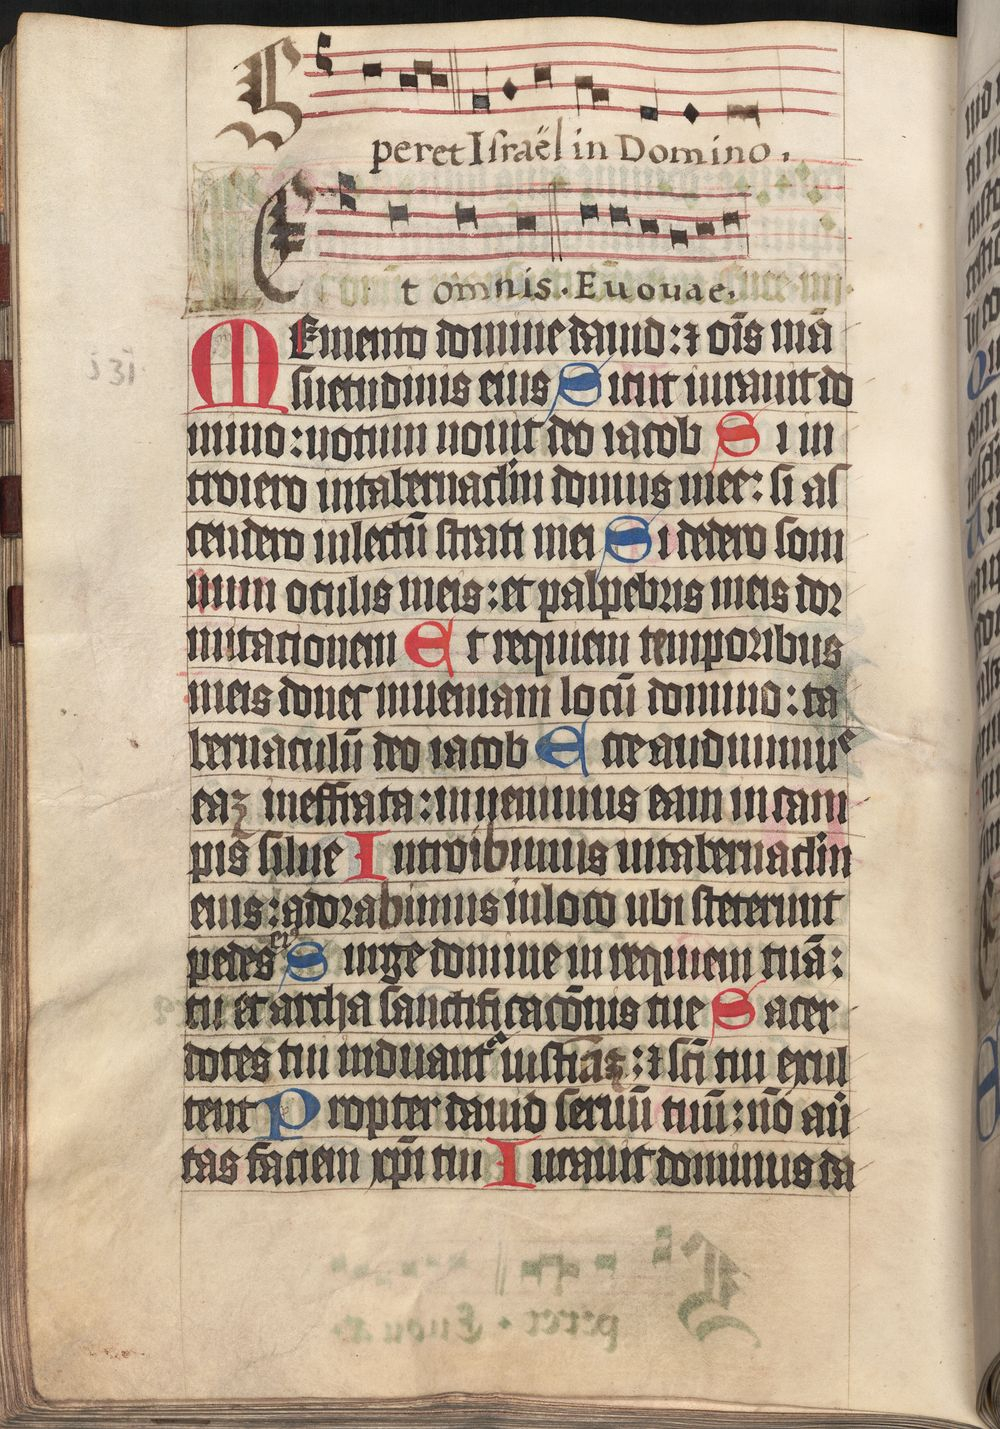 Speret Israël in Domino.
Et omnis. Euouae.
131
MEmento domine dauid: ⁊ oīs mā
suetudinis eius Sicut iurauit do
mino: uotum uouit deo iacob Si in
troiero intabernaclm̄ domus mee: si as
cendero inlectū strati mei Si dedero som
num oculis meis: et palpebris meis dor
mitationem Et requiem temporibus
meis donec inueniam locū domino: ta
bernaculū deo iacob Ecce audiuimus
eaꝫ ineffrata: inuenimus eam in cam
pis silue Introibimus intabernaclm̄
eius: adorabimus inloco ubi steterunt
pedes eiꝰ Surge domine in requiem tuā:
tu et archa sanctificacōnis tue Sacer
dotes tui induantᵉ iusticiaꝫ: ⁊ sc̄i tui exul
tent Propter dauid seruū tuū: nō auer
tas faciem xp̄i tui Iurauit dominus da